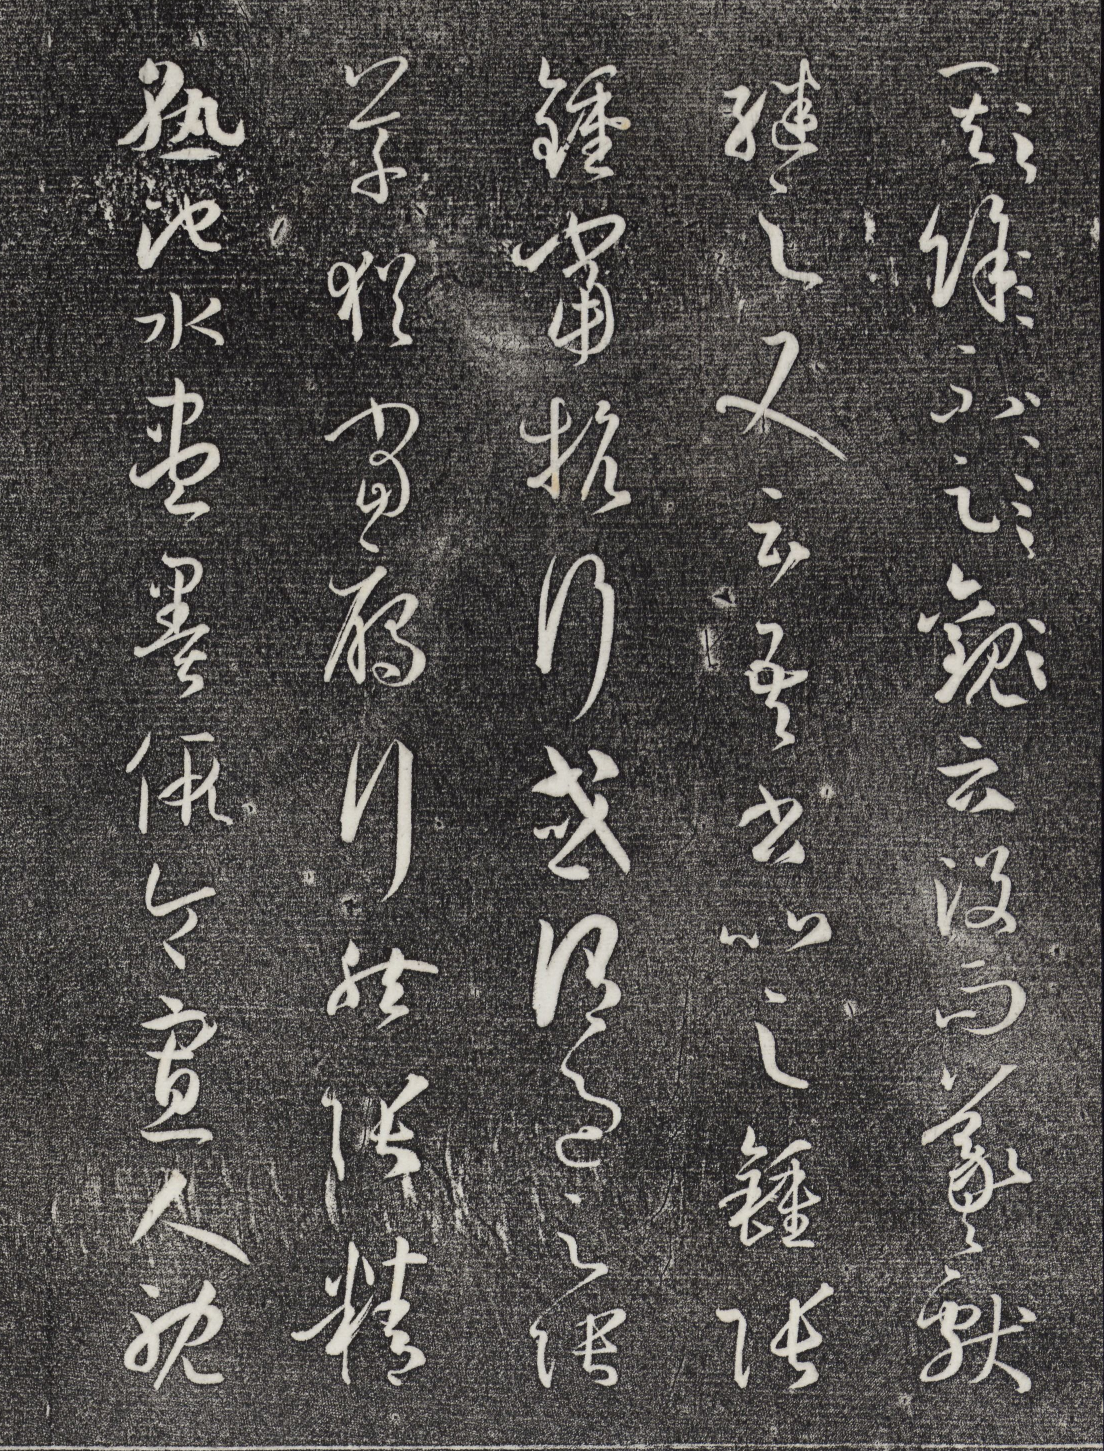 其餘不足觀云沒而羲獻
繼之又云吾書比之鍾張
鍾當抗行或謂過之張
草猶當雁行然張精
熟池水盡墨假令寡人耽